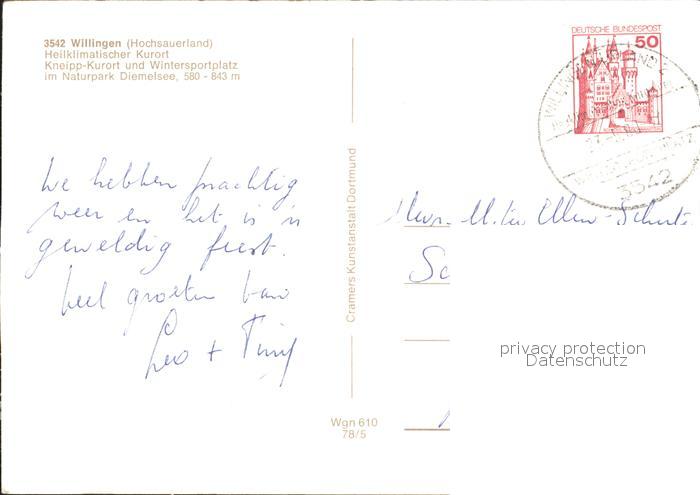 3542 Willingen (Hochsauerland)
Heilklimatischer Kurort
Kneipp-Kurort und Wintersportplatz
im Naturpark Diemelsee, 580 - 843 m
DEUTSCHE BUNDESPOST
50
3542
We hebben prachtig
weer en het is 'n
geweldig feest.
Veel groeten van
Leo + Tiny
Cramers Kunstanstalt Dortmund
Wgn 610
78/5
privacy protection
Datenschutz